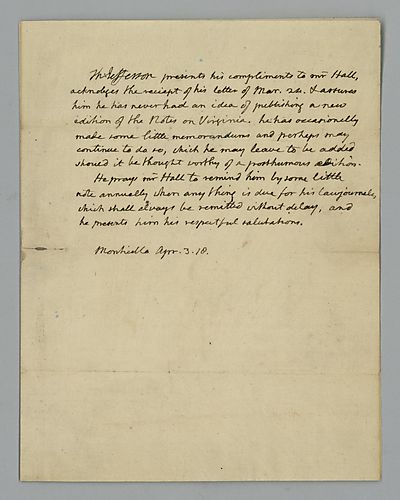 Th: Jefferson presents his compliments to mr Hall,
acknoleges the reciept of his letter of Mar. 24. & assures
him he has never had an idea of publishing a new
edition of the Notes on Virginia. he has occasionally
made some little memorandums and perhaps may
continue to do so, which he may leave to be added
should it be thought worthy of a posthumous edition.
He prays mr Hall to remind him by some little
note annually when any thing is due for his law journal,
which shall always be remitted without delay, and
he presents him his respectful salutations.
Monticello Apr. 3. 18.